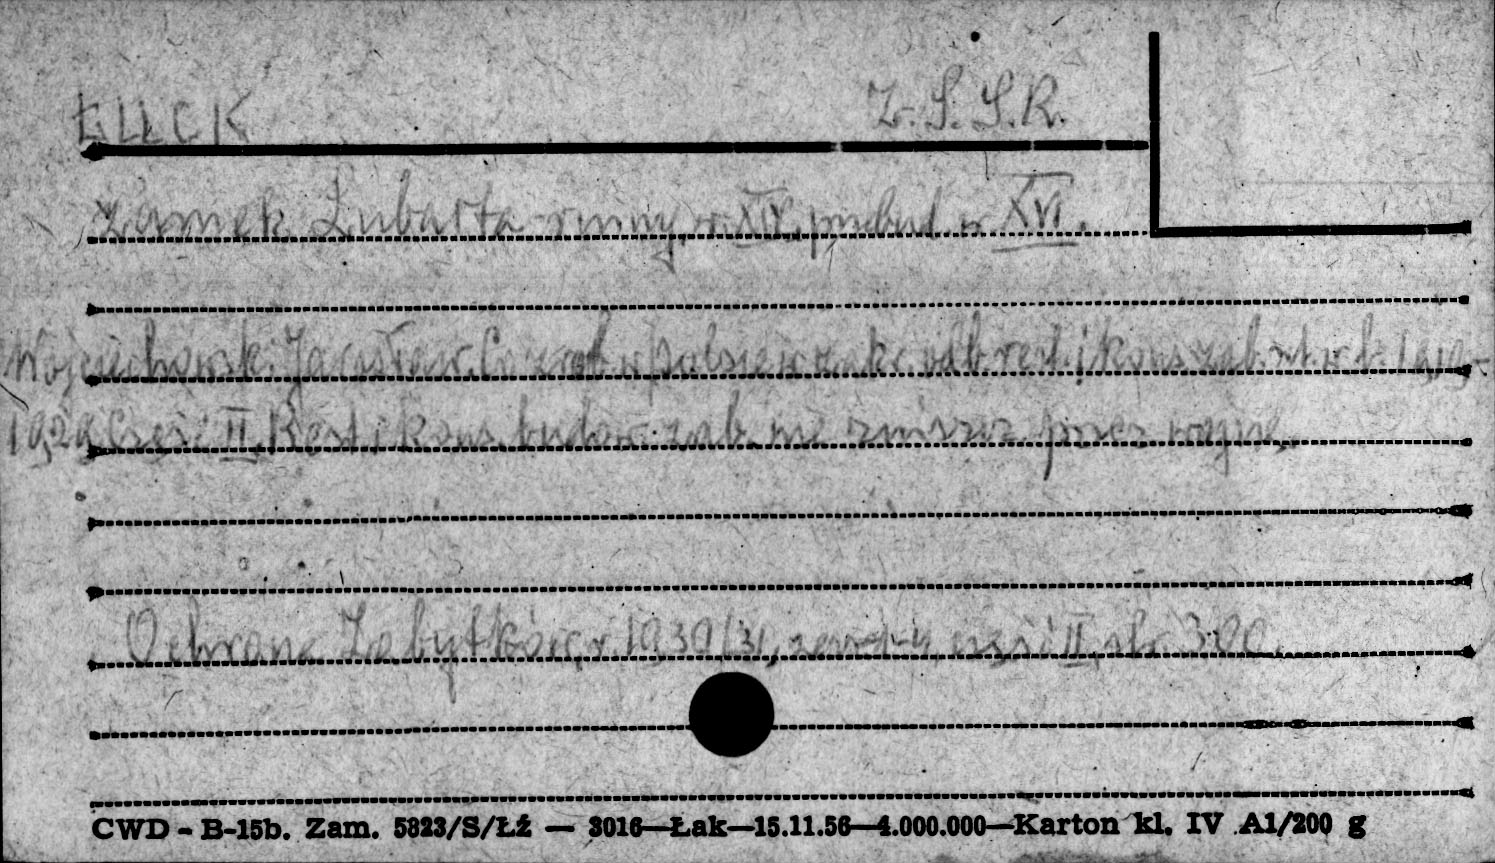 ŁUCK Z.S.S.R.
zamek Lubarta ruiny, w. XIV, przebud. w XVI.
Wojciechowski Jarosław. Co zrob. w Polsce w zakr. odb. rest. i kons. zab. szt. w l. 1919-
1929 Część II. Rest. i kons. budow. zab. nie zniszcz. przez wojnę.
Ochrona Zabytków, r. 1930/31, zesz. 1-4, część II, str. 300.
CWD - B-15b. Zam. 5823/S/Łź — 3016—Łak—15.11.56—4.000.000—Karton kl. IV A1/200 g